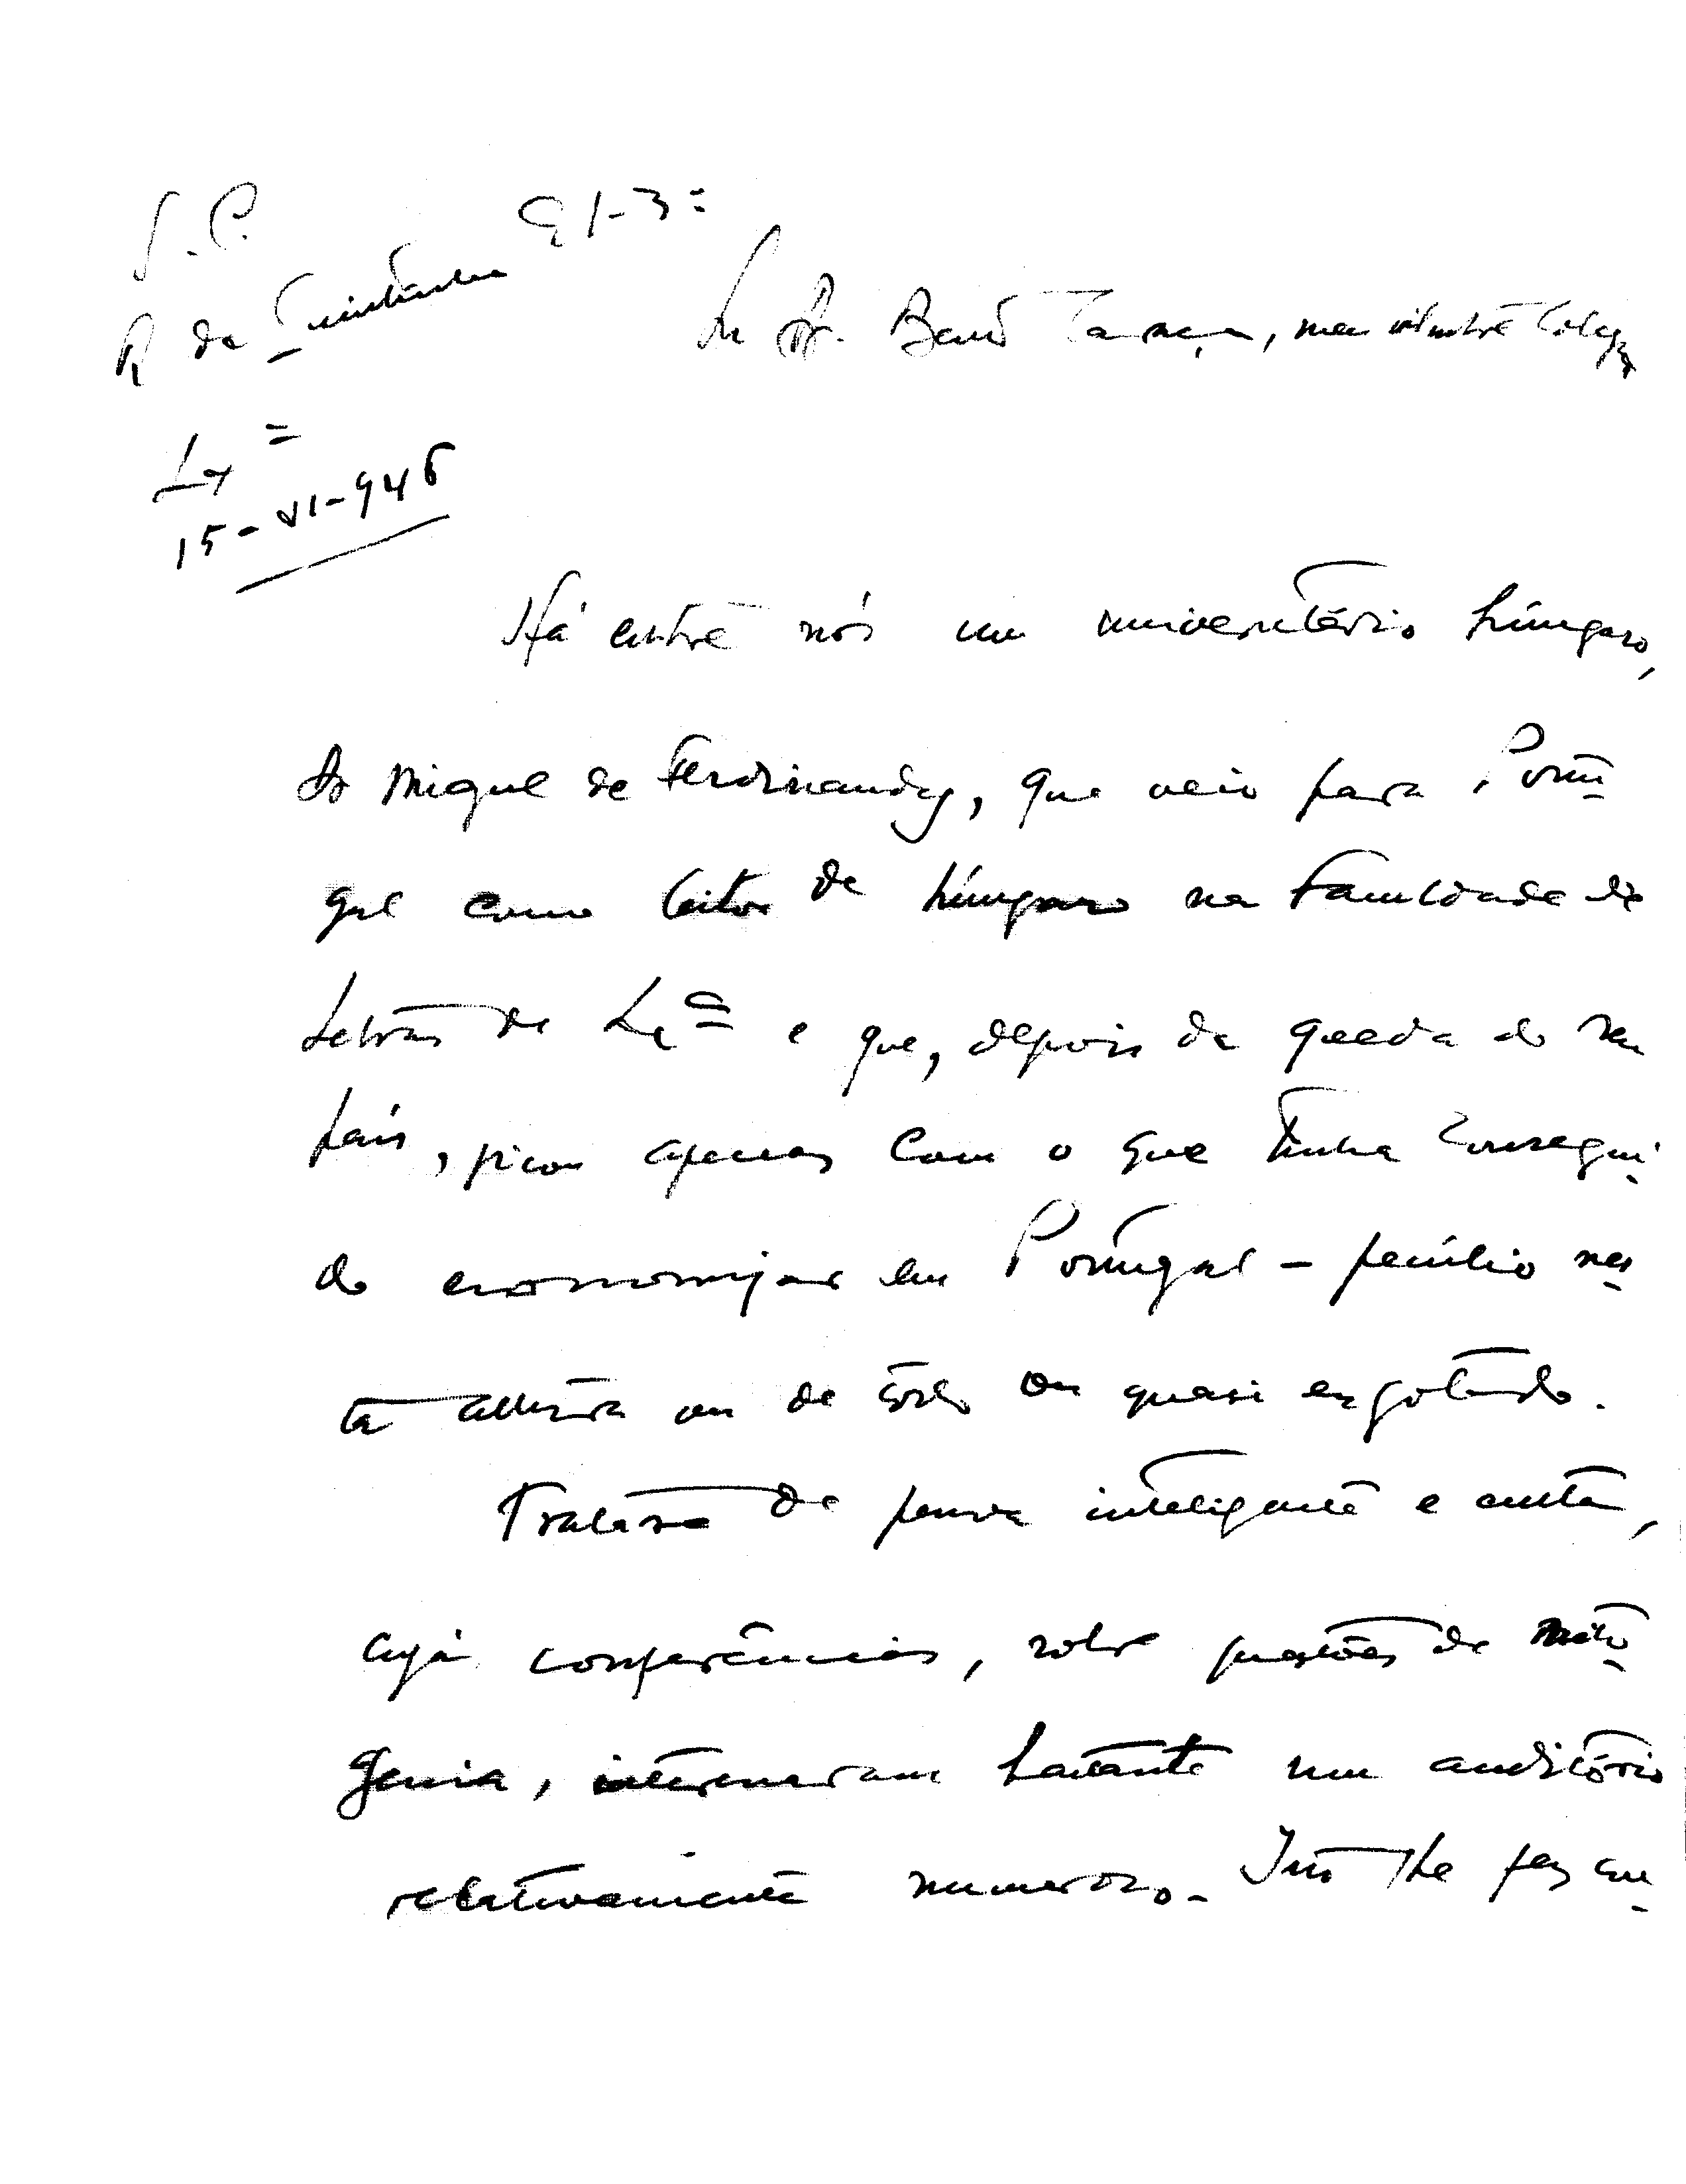 S. C.
R da Quintinha 91-3º
Lxª
15-VI-946
Sr Dr. Bento Caraça, meu ilustre Colega
Há entre nós um universitário húngaro,
Dr Miguel de Ferdinandy, que veio para Portu-
gal como leitor de húngaro na Faculdade de
Letras de Lxª e que, depois da queda do seu
país, ficou apenas com o que tinha consegui-
do economizar em Portugal – pecúlio nes-
ta altura ou de todo ou quasi esgotado.
Trata-se de pessoa inteligente e culta,
cujas conferências, sobre questões de mito-
genia, interessaram bastante um auditório
relativamente numeroso. Isto lhe fez